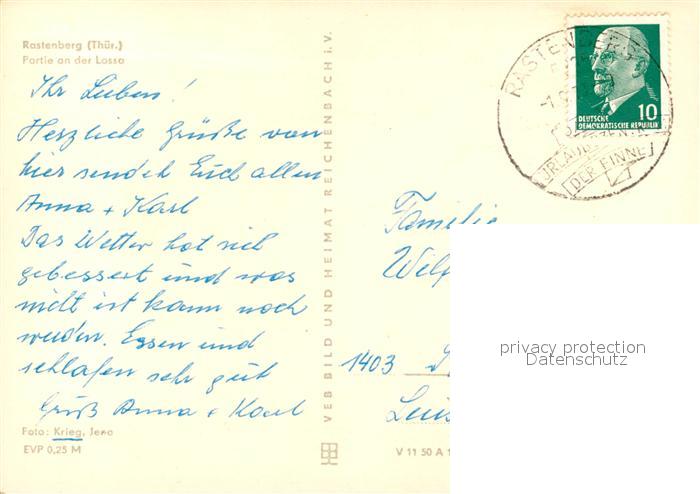 Rastenberg (Thür.)
Partie an der Lossa
Ihr Lieben!
Herzliche Grüße von
hier sendet Euch allen
Anna + Karl
Das Wetter hat sich
gebessert und was
nicht ist kann noch
werden. Essen und
schlafen sehr gut
Gruß Anna + Karl
Foto: Krieg, Jena
EVP 0,25 M
VEB BILD UND HEIMAT REICHENBACH i. V.
V 11 50 A 1
RASTENBERG
URLAUB
DER FINNE
10
DEUTSCHE
DEMOKRATISCHE REPUBLIK
Familie
1403
privacy protection
Datenschutz